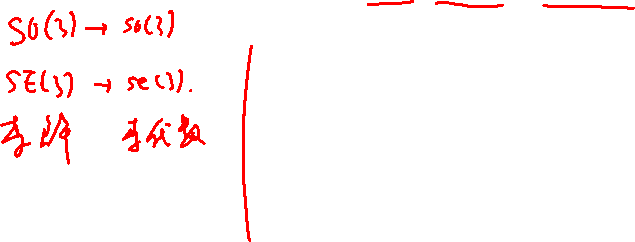 SO(3) → so(3)
SE(3) → se(3).
李群 李代数